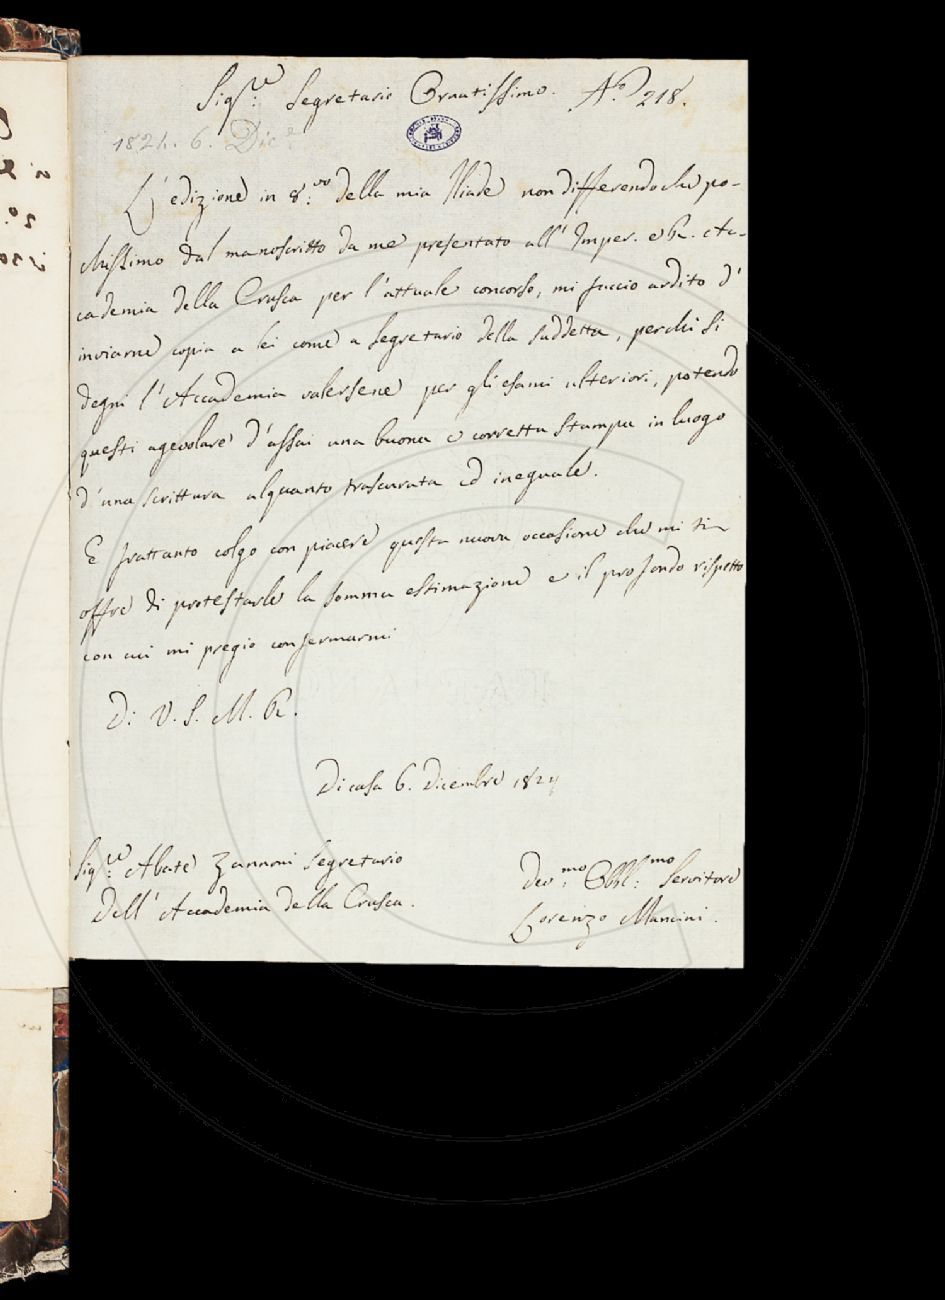 Sig.re Segretario Ornatissimo. N.o 218.
1824. 6. Dic.e
L'edizione in 8.vo della mia Iliade non differendo che po-
chissimo dal manoscritto da me presentato all'Imper. e R. Ac-
cademia della Crusca per l'attuale concorso, mi faccio ardito d'
inviarne copia a lei come a Segretario della suddetta, perchè si
degni l'Accademia valersene per gli esami ulteriori, potendo
questi agevolare d'assai una buona e corretta stampa in luogo
d'una scrittura alquanto trascurata ed ineguale.
E frattanto colgo con piacere questa nuova occasione che mi si
offre di protestarle la somma estimazione e il profondo rispetto
con cui mi pregio confermarmi
Di V. S. M. R.
Di casa 6. Dicembre 1824
Sig.re Abate Zannoni Segretario
Dell'Accademia della Crusca.
Dev.mo Obbl.mo Servitore
Lorenzo Mancini.